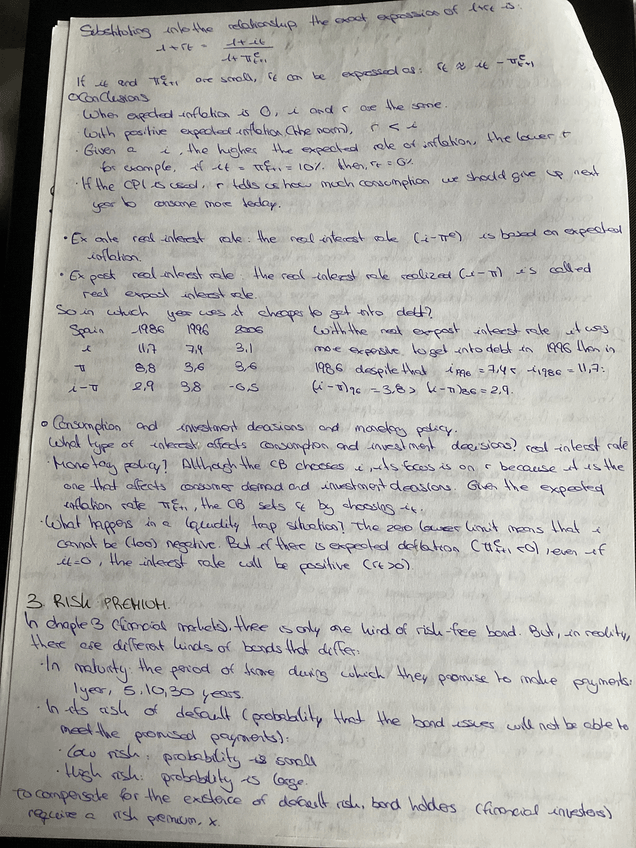 Substituting into the relationship the exact expression of 1+rt is:
1+rt = 1+it / 1+πᵉt+1
If it and πᵉt+1 are small, rt can be expressed as: rt ≈ it - πᵉt+1
○ Conclusions
When expected inflation is 0, i and r are the same.
With positive expected inflation (the norm), r < i
· Given a i, the higher the expected rate of inflation, the lower r
for example, if it = πᵉt+1 = 10% then, rt = 0%
· If the CPI is used, r tells us how much consumption we should give up next
year to consume more today.
· Ex ante real interest rate: the real interest rate (i-πᵉ) is based on expected
inflation.
· Ex post real interest rate: the real interest rate realized (i-π) is called
real expost interest rate.
So in which year was it cheaper to get into debt?
Spain 1986 1996 2006 With the real expost interest rate it was
i 11,7 7,4 3,1 more expensive to get into debt in 1996 then in
π 8,8 3,6 3,6 1986 despite that i1996 = 7,4 < i1986 = 11,7:
i-π 2,9 3,8 -0,5 (i-π)96 = 3,8 > (i-π)86 = 2,9.
○ Consumption and investment decisions and monetary policy.
What type of interest affects consumption and investment decisions? real interest rate
· Monetary policy? Although the CB chooses i, its focus is on r because it is the
one that affects consumer demand and investment decisions. Given the expected
inflation rate πᵉt+1, the CB sets rt by choosing it.
· What happens in a liquidity trap situation? The zero lower limit means that i
cannot be (too) negative. But if there is expected deflation (πᵉt+1 <0), even if
it=0, the interest rate will be positive (rt>0)
3. RISK PREMIUM.
In chapter 3 (financial markets), there is only one kind of risk-free bond. But, in reality,
there are different kinds of bonds that differ:
· In maturity: the period of time during which they promise to make payments:
1year, 5, 10, 30 years.
· In its risk of default (probability that the bond issues will not be able to
meet the promised payments):
· Low risk: probability is small
· High risk: probability is large.
to compensate for the existence of default risk, bond holders (financial investors)
require a risk premium, x.